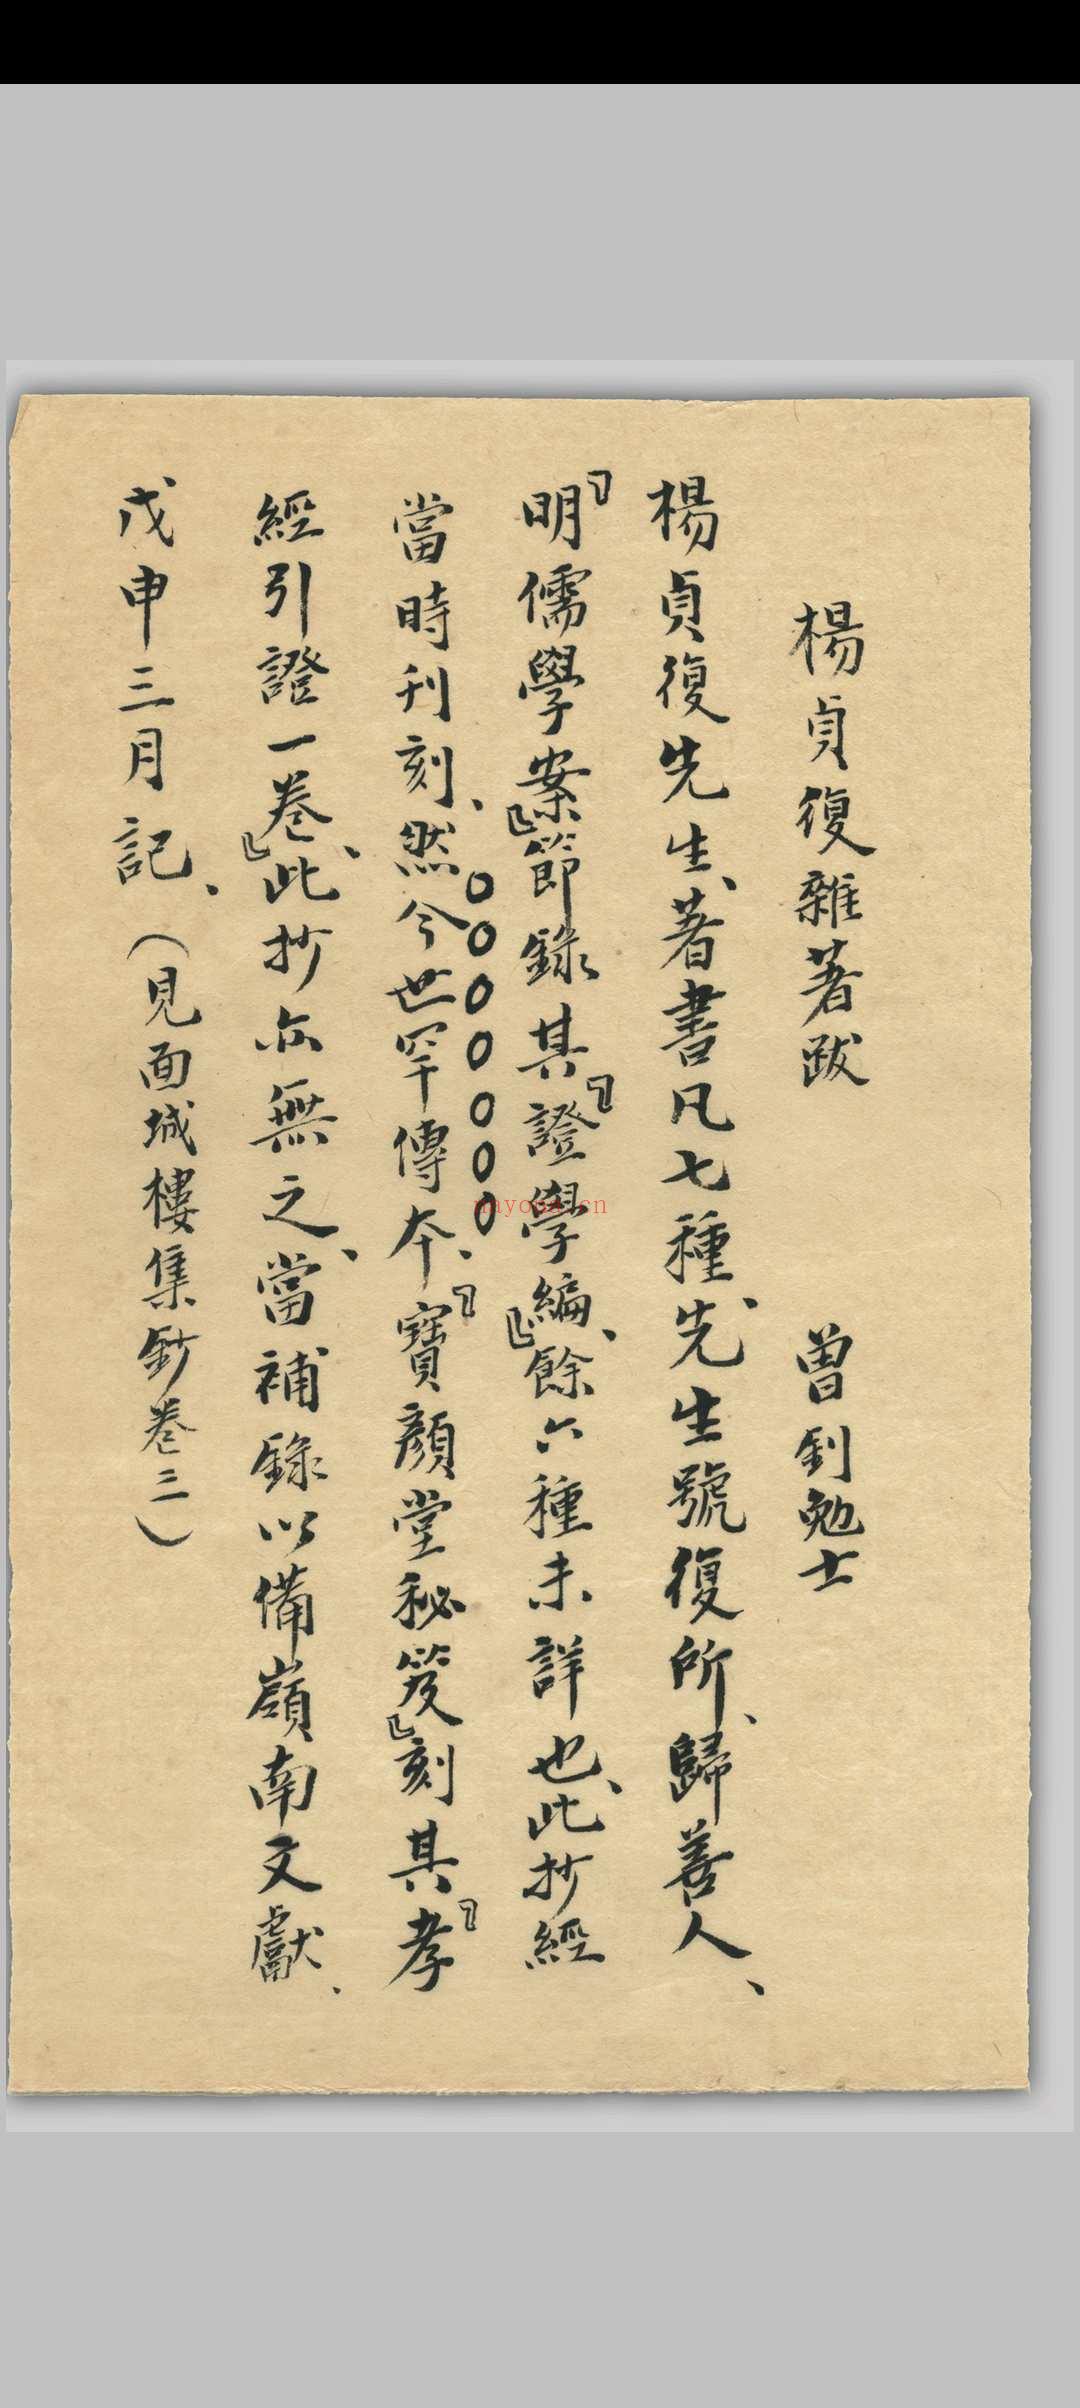 楊貞復雜著跋　曾釗勉士
楊貞復先生、著書凡七種、先生號復所、歸善人、
『明儒學案』節錄其『證學編』、餘六種未詳也、此抄經
當時刊刻、然今世罕傳本、『寶顏堂秘笈』刻其『孝
經引證一卷』、此抄亦無之、當補錄以備嶺南文獻、
戊申三月記、（見面城樓集鈔卷三）
nayona.cn